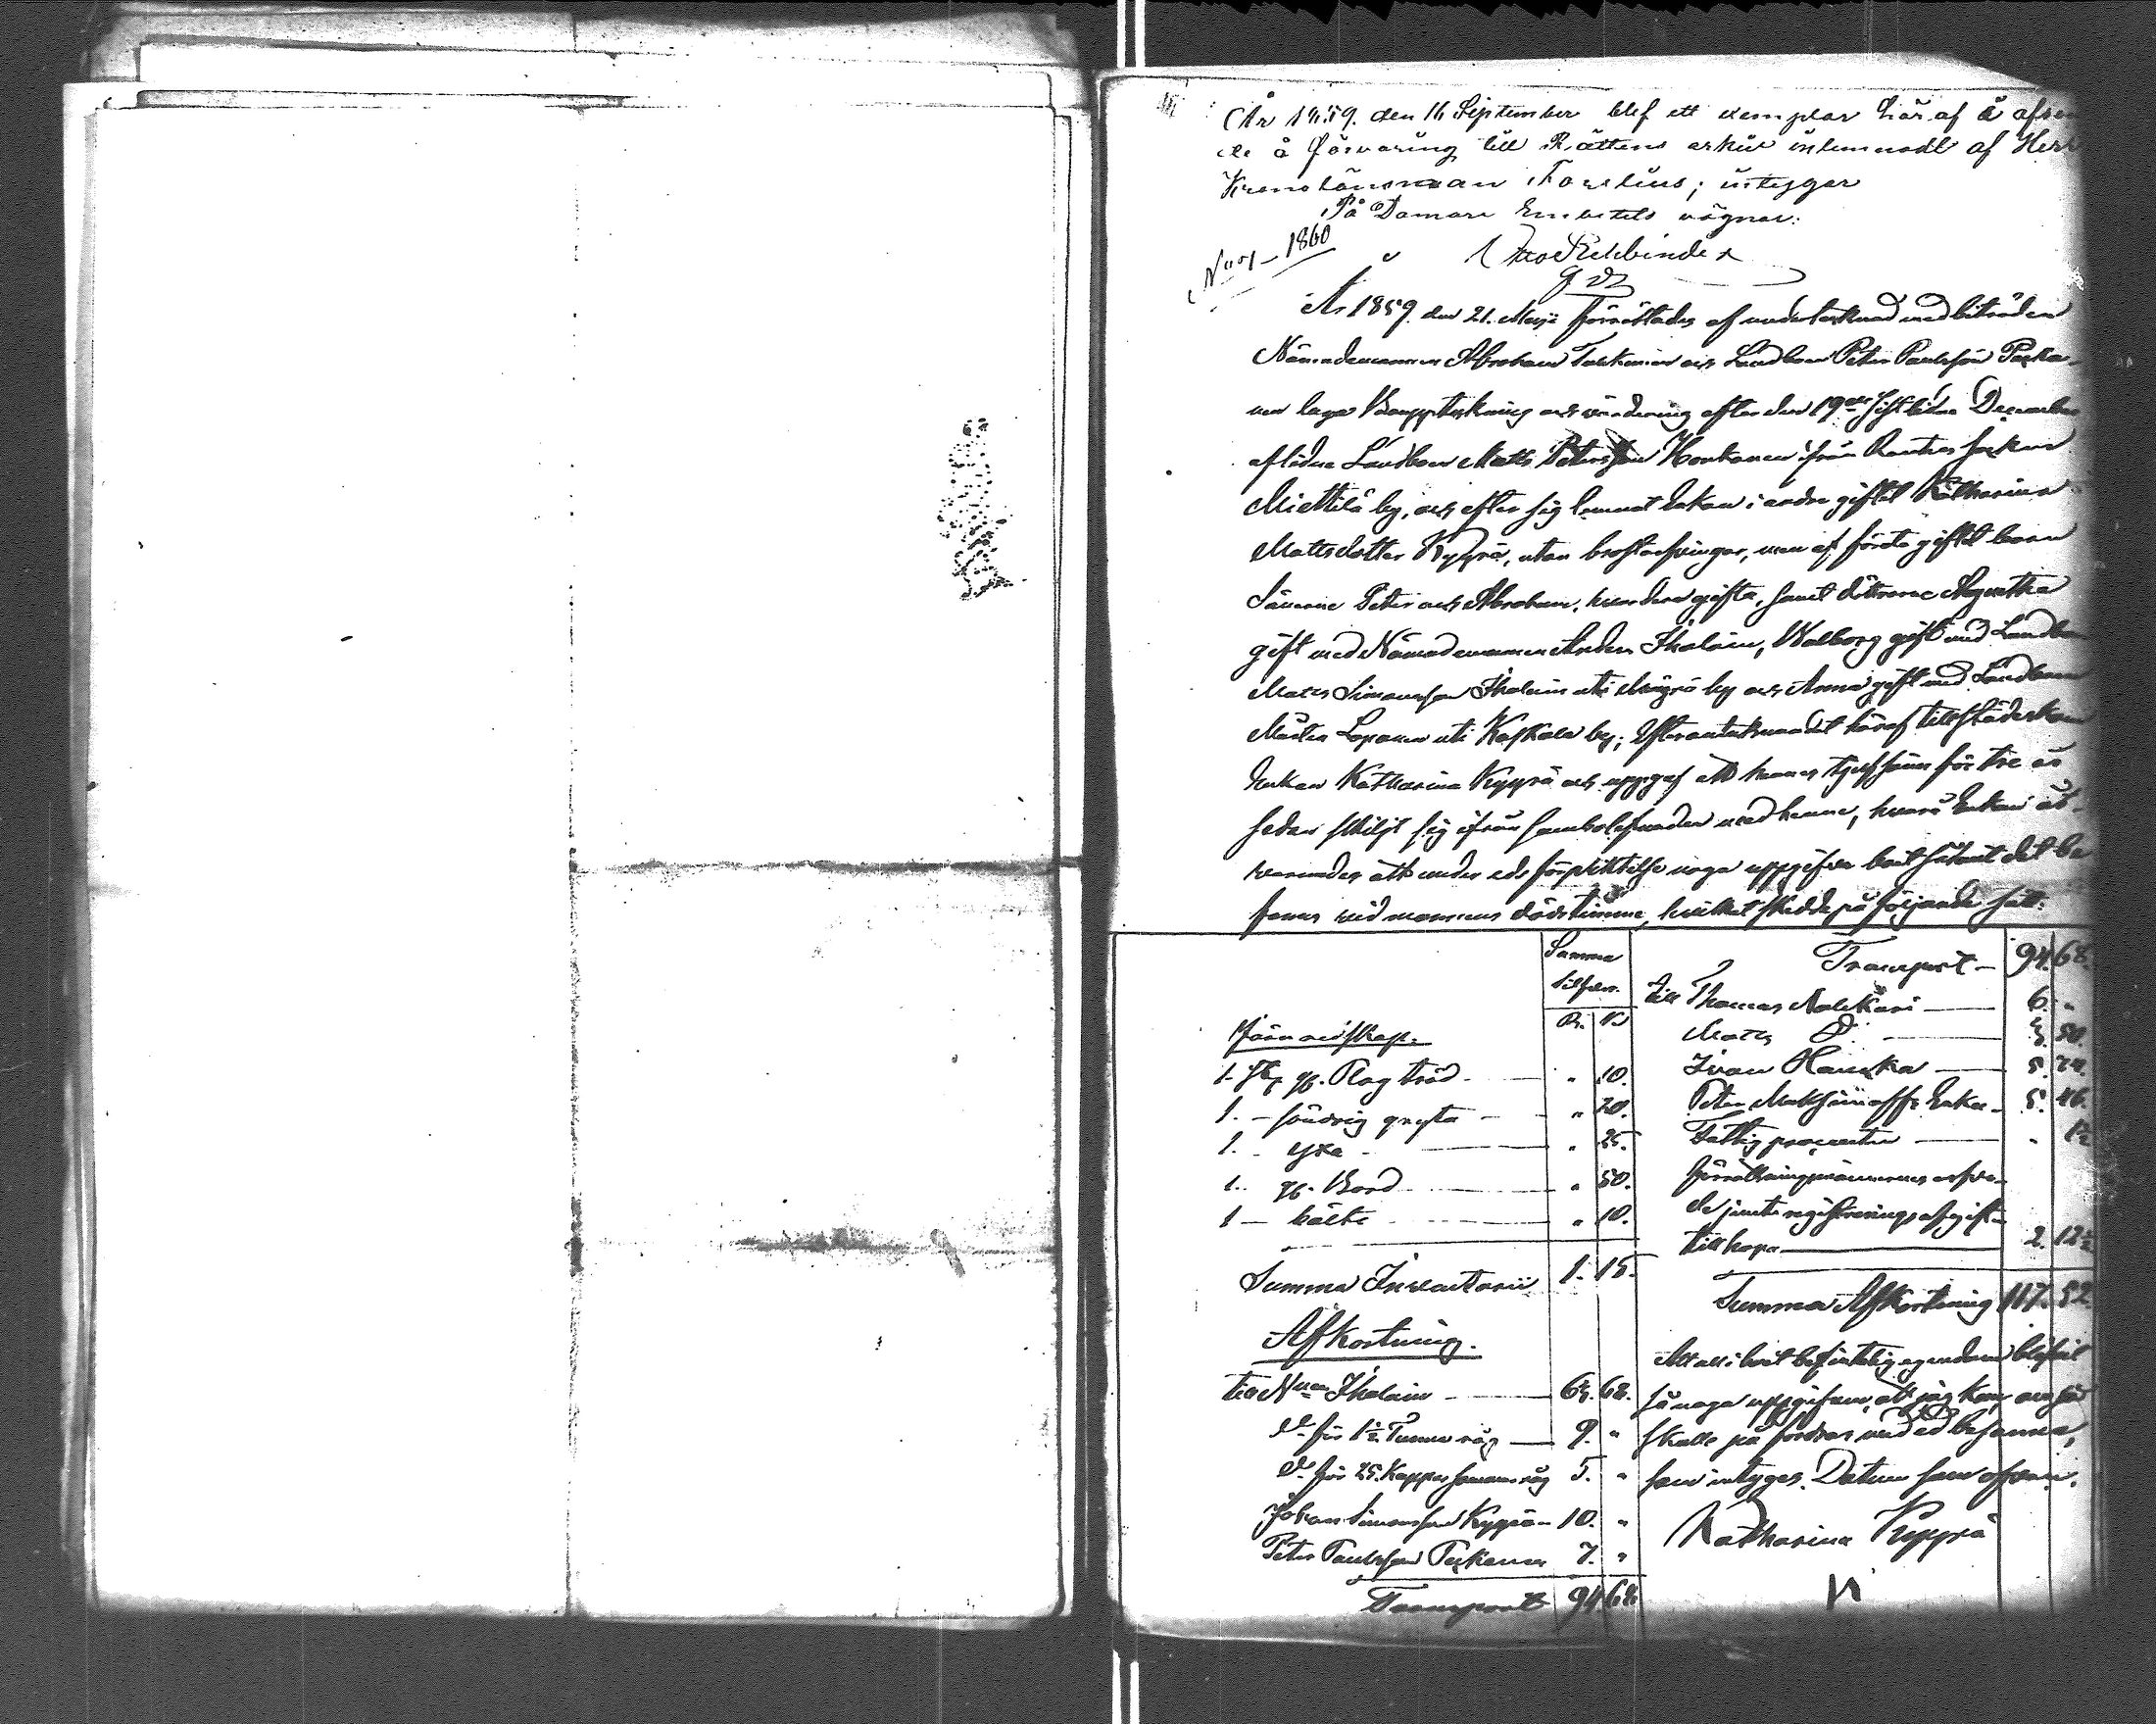 År 1859. den 16 September blef ett exemplar här af å afsen
de å förvaring till Rättens arkiv inlemnadt af Herr
Kronolänsman Forelius; intygar
På Domare Embetets vägnar:
Otto Rehbinder
1860
År 1859. den 21. Maji förrättades af undertecknad med biträden
Nämndemannen Abraham Tukkunen och Landboen Peter Paulsson Paka-
nen laga Bouppteckning och värdering efter den 19de sistlidne December
aflidne Landboen Matts Petersson Honkanen ifrån Rautus socken
Miettilä by, och efter sig lemnat Enkan i andra giftet Katharina
Mattsdotter Kyyrä, utan bröstarfvingar, men af första giftet barn
Sönerne Peter och Abraham, hvardera gifta, samt döttrarne Agnetha
gift med Nämndemannen Anders Ihalain, Walborg gift med Landboen
Matts Simonsson Ihalain uti by och Anna gift med Landboen
Mårten Loponen uti Kaskala by; Efterantecknandet häraf tillstädeskom
Enkan Katharina Kyyrä och uppgaf att hennes styfsöner för tre år
sedan skiljt sig ifrån sambolagsmaden med henne, hvarå Enkan åt-
varnades att under eds förpliktelse noga uppgifva boet sådant det be
fanns vid mannens dödstimme, hvilket skedde på följande sätt:
Summa
Silfver.
R. K.
Järnredskap.
1. st. gl. Plog träd " 10.
1. - söndrig gryta " 20.
1. - yxa " 25.
1. gl. Bord " 50.
1 - bälte " 10.
Summa Inventarii 1. 15.
Afkortning.
till Nmn Ihalain 63. 68.
do för 1½ Tunna råg 9. "
do för 25. Kappar råg 5. "
Johan Simonsson Kyyrä 10. "
Peter Paulsson Pakanen 7. "
Transport 94. 68.
Transport 94. 68.
till Thomas Nalkari 6. "
Matts Do 3. 50.
Ivan Hanska 5. 74.
Peter Enka 5. 46.
Fattig procenter " 1½
förrättningsmännernes arfvo-
de jemte registrerings afgift
tillhopa 2. 12½
Summa Afkortning 117. 52.
Att all i boet befintlig egendom blifvit
så noga uppgifven, att jag kan och
skall på fordran med ed besanna,
som intygas. Datum som ofvan.
Katharina Kyyrä